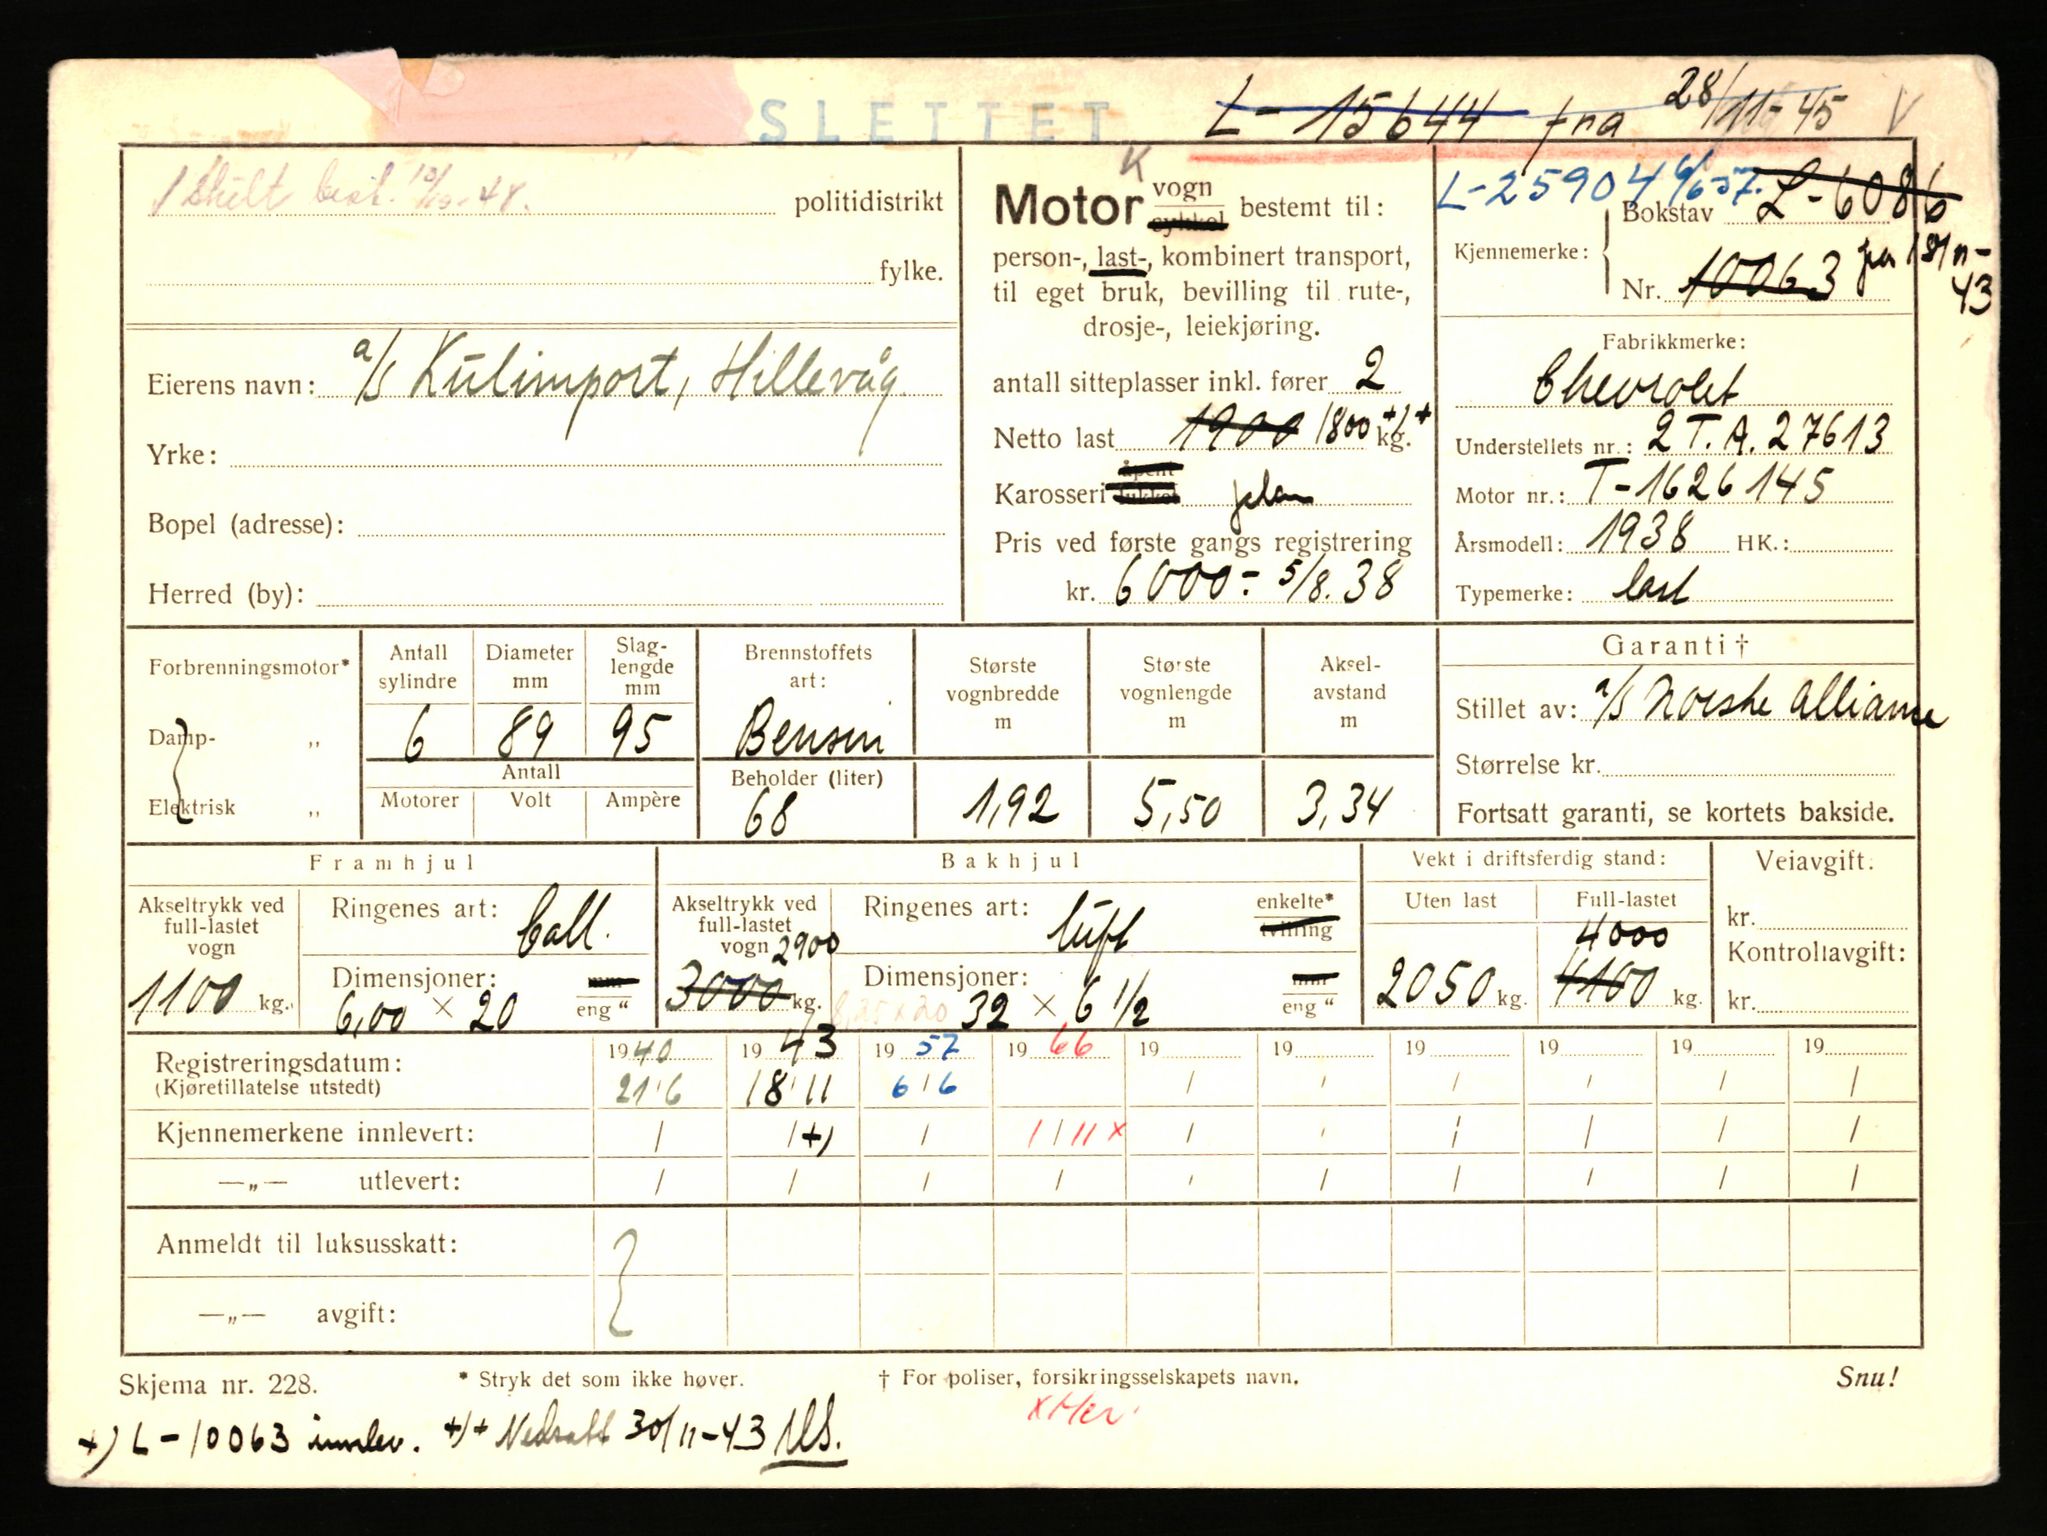 SLETTET L-15644 fra 28/11-45 V
1 Skilt best. politidistrikt
fylke.
Eierens navn: a/s Kulimport, Hillevåg
Yrke:
Bopel (adresse):
Herred (by):
K
Motor vogn
sykkel bestemt til:
person-, last-, kombinert transport,
til eget bruk, bevilling til rute-,
drosje-, leiekjøring.
antall sitteplasser inkl. fører 2
Netto last 1900 1800 +)+ kg.
Karosseri åpent
lukket plan
Pris ved første gangs registrering
kr. 6000:- 5/8.38
L-25904 6/6-57. L-6086
Kjennemerke: Bokstav
Nr. 10063 fra 18/11-43
Fabrikkmerke:
Chevrolet
Understellets nr.: 2 T.A. 27613
Motor nr.: T-1626145
Årsmodell: 1938 HK.:
Typemerke: last
Forbrenningsmotor*
Damp- „
Elektrisk „
Antall sylindre
6
Diameter mm
89
Slag-
lengde
mm
95
Antall
Motorer Volt Ampère
Brennstoffets
art:
Bensin
Beholder (liter)
68
Største
vognbredde
m
1,92
Største
vognlengde
m
5,50
Aksel-
avstand
m
3,34
Garanti †
Stillet av: a/s Norske Alliance
Størrelse kr.
Fortsatt garanti, se kortets bakside.
Framhjul
Akseltrykk ved
full-lastet
vogn
1100 kg.
Ringenes art: ball.
Dimensjoner: mm
6,00 × 20 eng “
Bakhjul
Akseltrykk ved
full-lastet
vogn 2900
3000 kg.
Ringenes art: luft enkelte*
tvilling
Dimensjoner: mm
8,25 x 20 32 × 6 1/2 eng “
Vekt i driftsferdig stand:
Uten last Full-lastet
4000
2050 kg. 4100 kg.
Veiavgift:
kr.
Kontrollavgift:
kr.
Registreringsdatum: 1940 1943 1957 1966 19 19 19 19 19 19
(Kjøretillatelse utstedt) 21/6 18/11 6/6 / / / / / /
Kjennemerkene innlevert: / / +) / 1/11 x / / / / / /
—„— utlevert: / / / / / / / / / /
Anmeldt til luksusskatt:
—„— avgift:
Skjema nr. 228. * Stryk det som ikke høver. † For poliser, forsikringsselskapets navn. Snu!
+) L-10063 innlev. +)+ Nedsatt 30/11-43